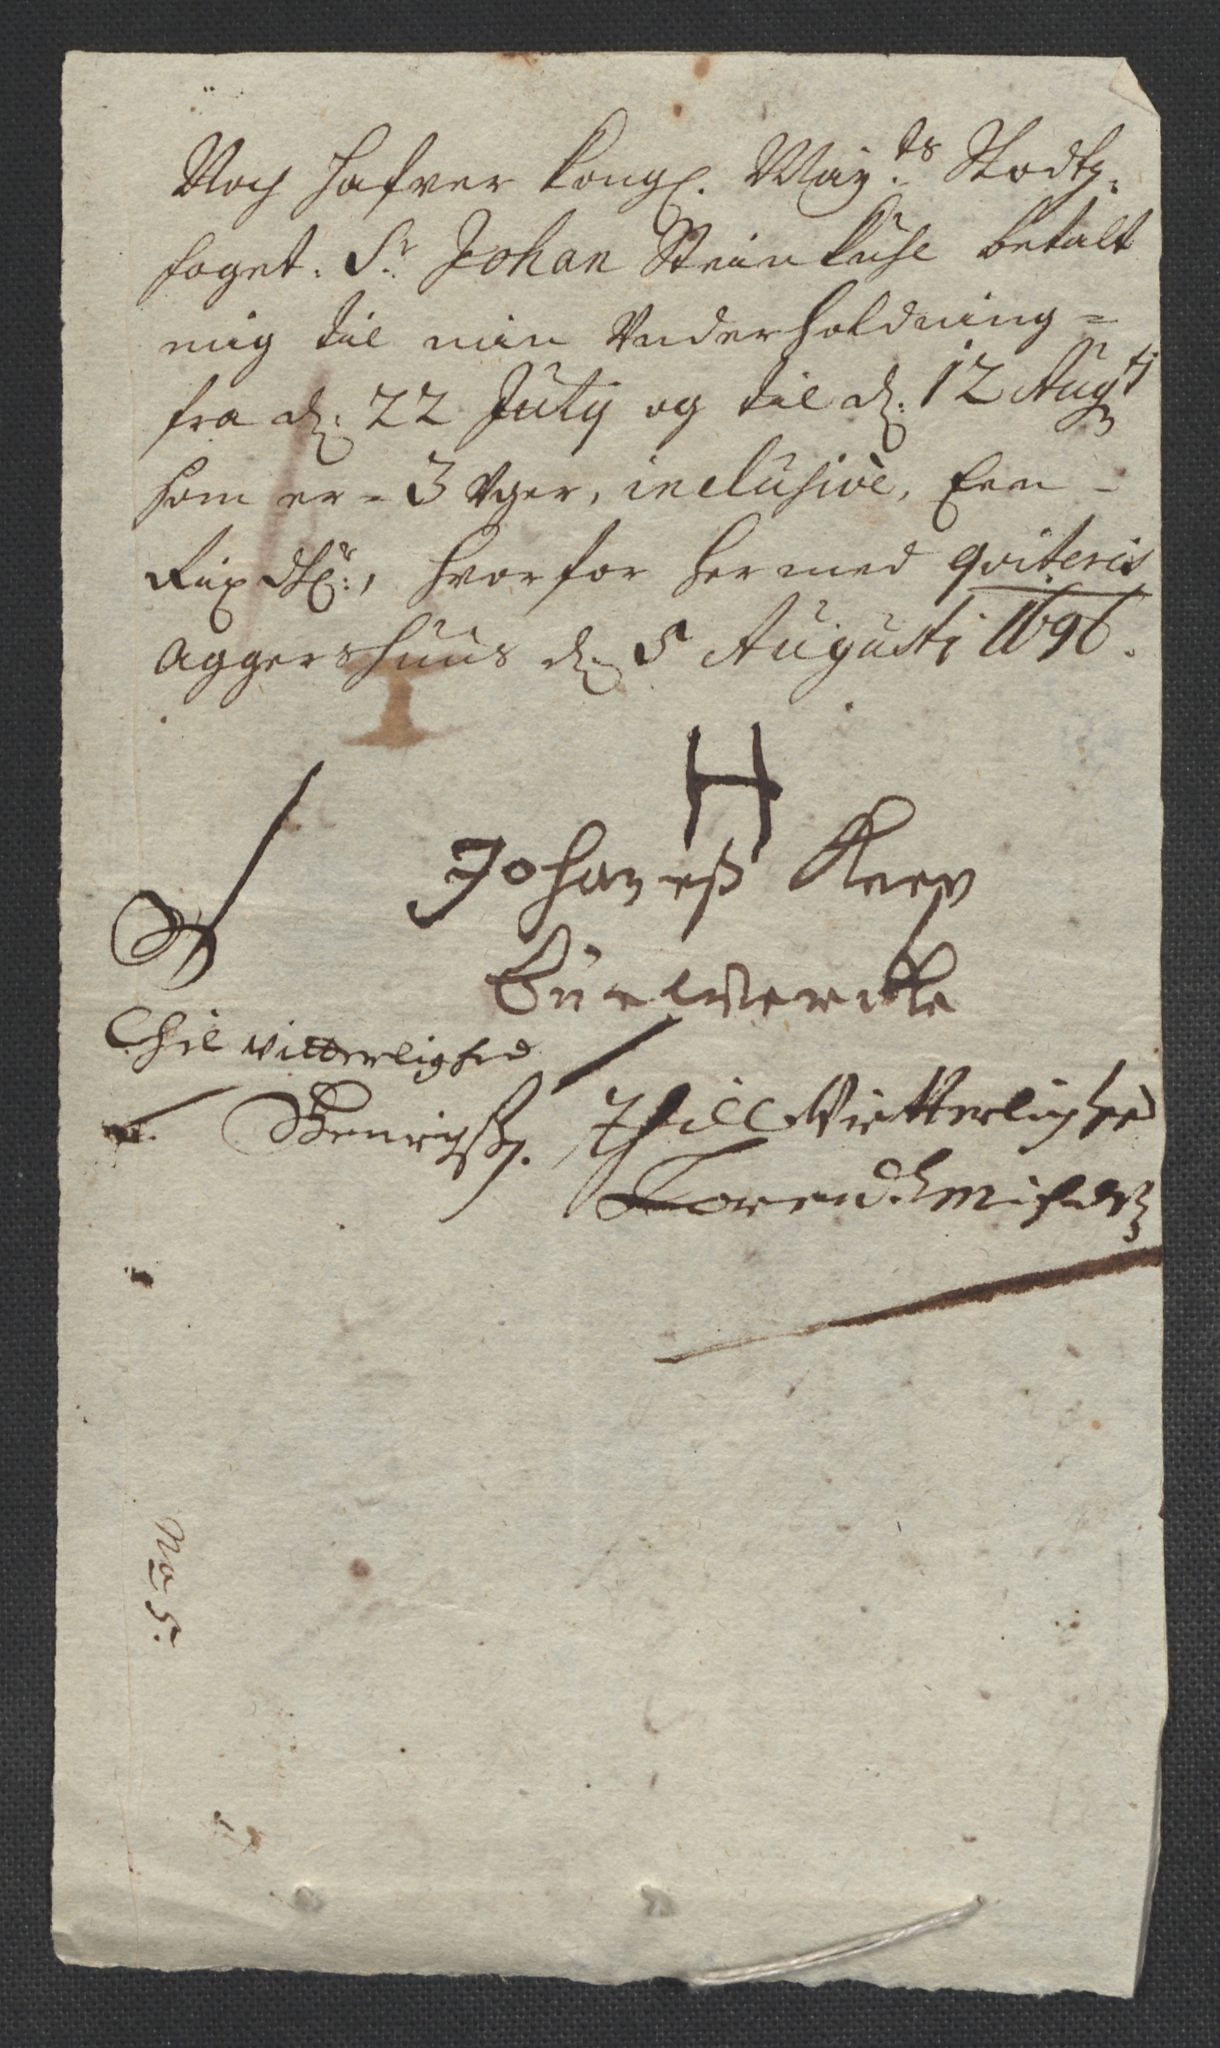 Noch hafver kongl. May.ts Stodtz-
foget. Sr. Johan Steinkuhl betalt
mig til min Vnderholdning =
fra d. 22 July og til d. 12 Augti
som er - 3 Vger, inclusive, Een -
Rix dlr:, hvorfor hermed qviteris
Aggershuus d. 5 Augusti 1696.
H
Johaneß
Thil Vitterlighed
Thill Vietterlighed
No 5.